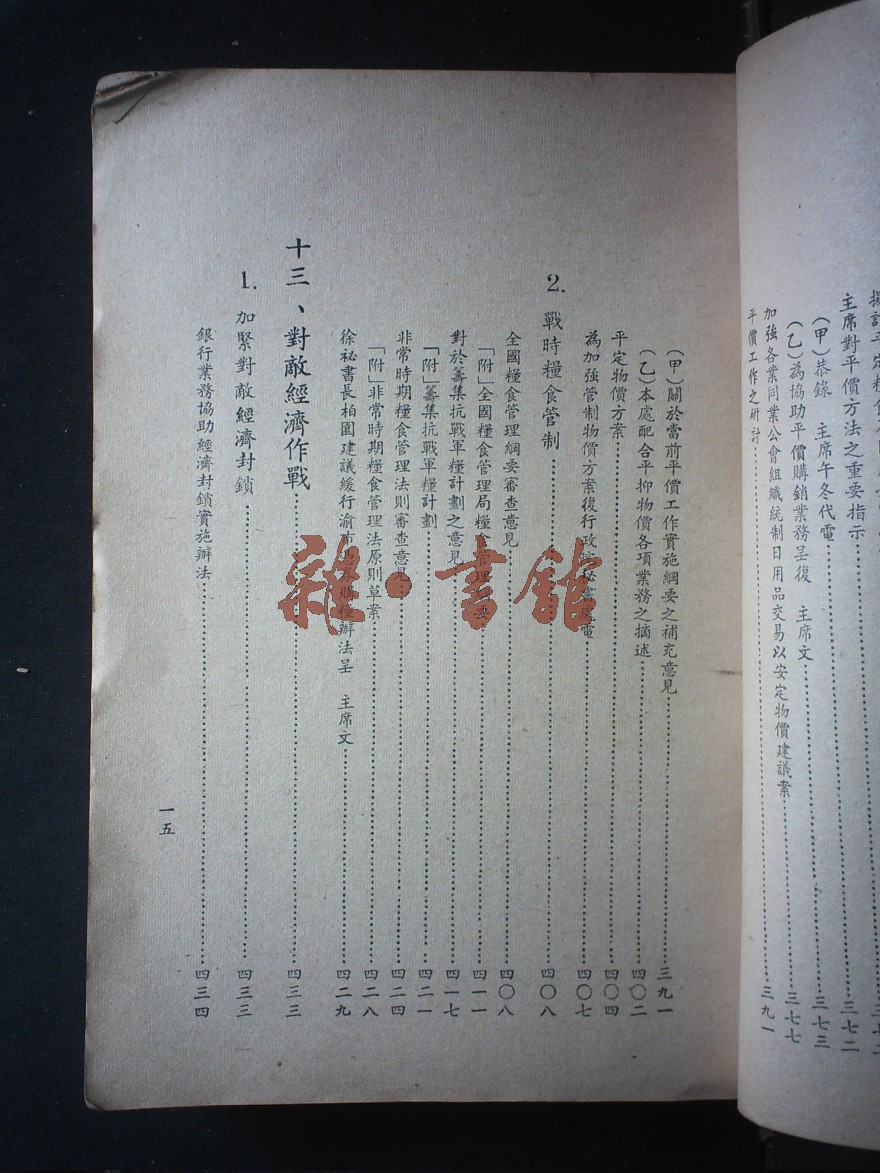 主席對平價方法之重要指示……三七二
（甲）恭錄　主席午冬代電……三七三
（乙）為協助平價購銷業務呈復　主席文……三七七
加強各業同業公會組織統制日用品交易以安定物價建議案
平價工作之研討……三九一
（甲）關於當前平價工作實施綱要之補充意見……三九一
（乙）本處配合平抑物價各項業務之摘述……四〇二
平定物價方案……四〇四
為加強管制物價方案復行政院祕書處電……四〇七
2. 戰時糧食管制……四〇八
全國糧食管理綱要審查意見……四〇八
「附」全國糧食管理局糧食管理綱要……四一一
對於籌集抗戰軍糧計劃之意見……四一七
「附」籌集抗戰軍糧計劃……四二一
非常時期糧食管理法則審查意見……四二四
「附」非常時期糧食管理法原則草案……四二八
徐祕書長柏園建議緩行渝市購糧辦法呈　主席文……四二九
十三、對敵經濟作戰……四三三
1. 加緊對敵經濟封鎖……四三三
銀行業務協助經濟封鎖實施辦法……四三四
一五
雜·書館